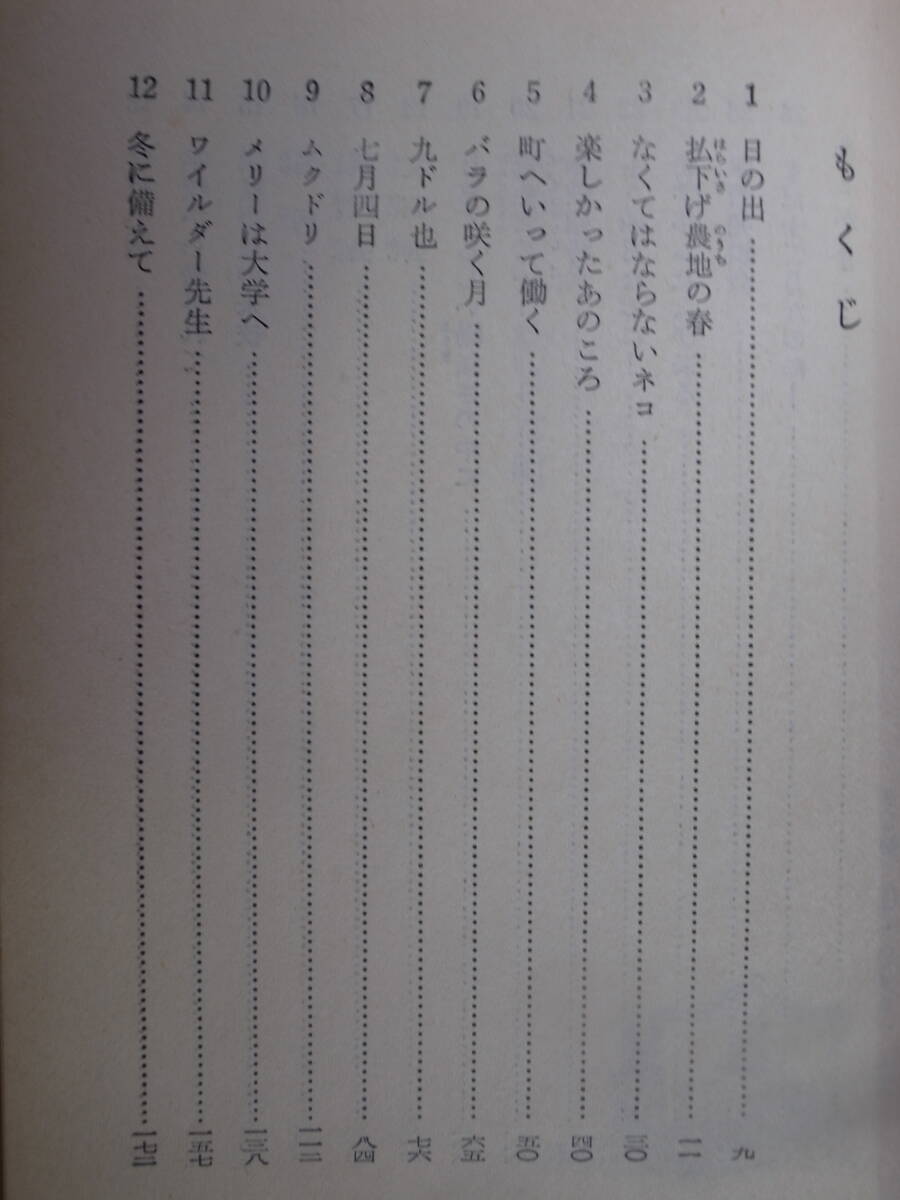 もくじ
1 日の出……九
2 払下げ農地の春……一一
3 なくてはならないネコ……三〇
4 楽しかったあのころ……四〇
5 町へいって働く……五〇
6 バラの咲く月……六五
7 九ドル也……七六
8 七月四日……八四
9 ムクドリ……一一二
10 メリーは大学へ……一三八
11 ワイルダー先生……一五七
12 冬に備えて……一七二